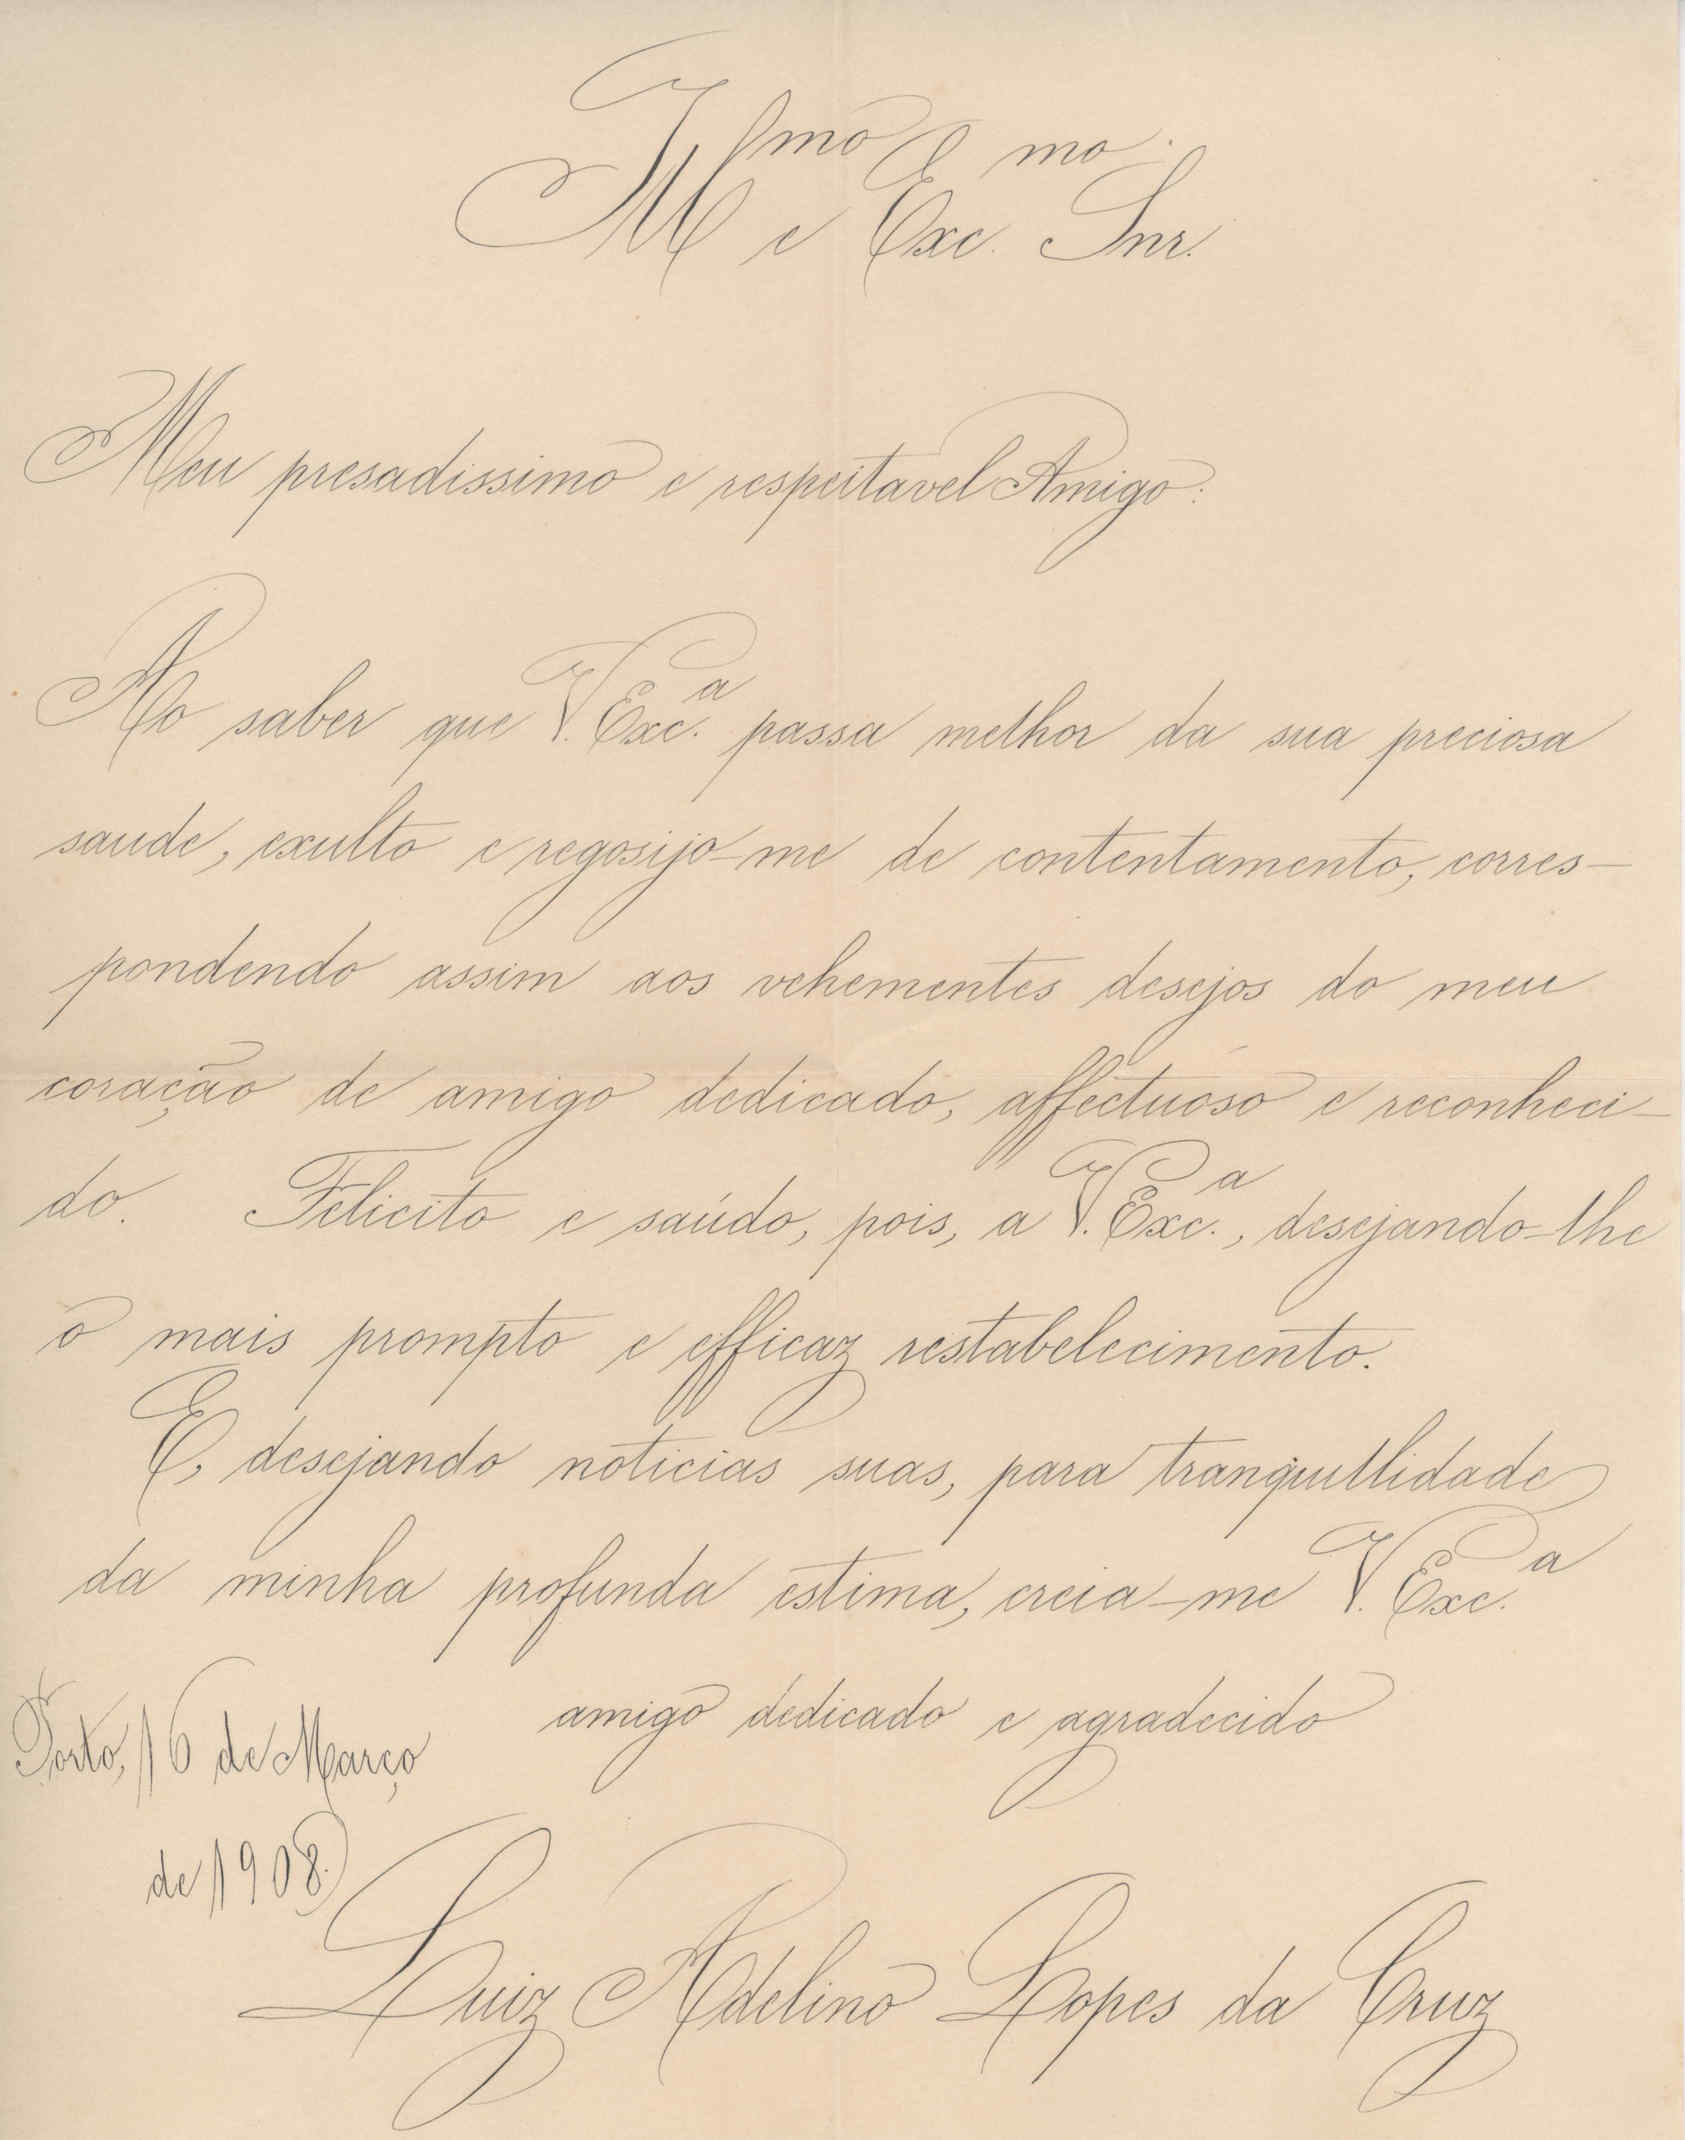 Illmo e Excmo. Snr.
Meu presadissimo e respeitavel Amigo:
Ao saber que V. Exc.ª passa melhor da sua preciosa
saude, exulto e regosijo-me de contentamento, corres-
pondendo assim aos vehementes desejos do meu
coração de amigo dedicado, affectuoso e reconheci-
do. Felicito e saúdo, pois, a V. Exc.ª, desejando-lhe
o mais prompto e efficaz restabelecimento.
E, desejando noticias suas, para tranquillidade
da minha profunda estima, creia-me V. Exc.ª
amigo dedicado e agradecido
Porto, 16 de Março
de 1908.
Luiz Adelino Lopes da Cruz